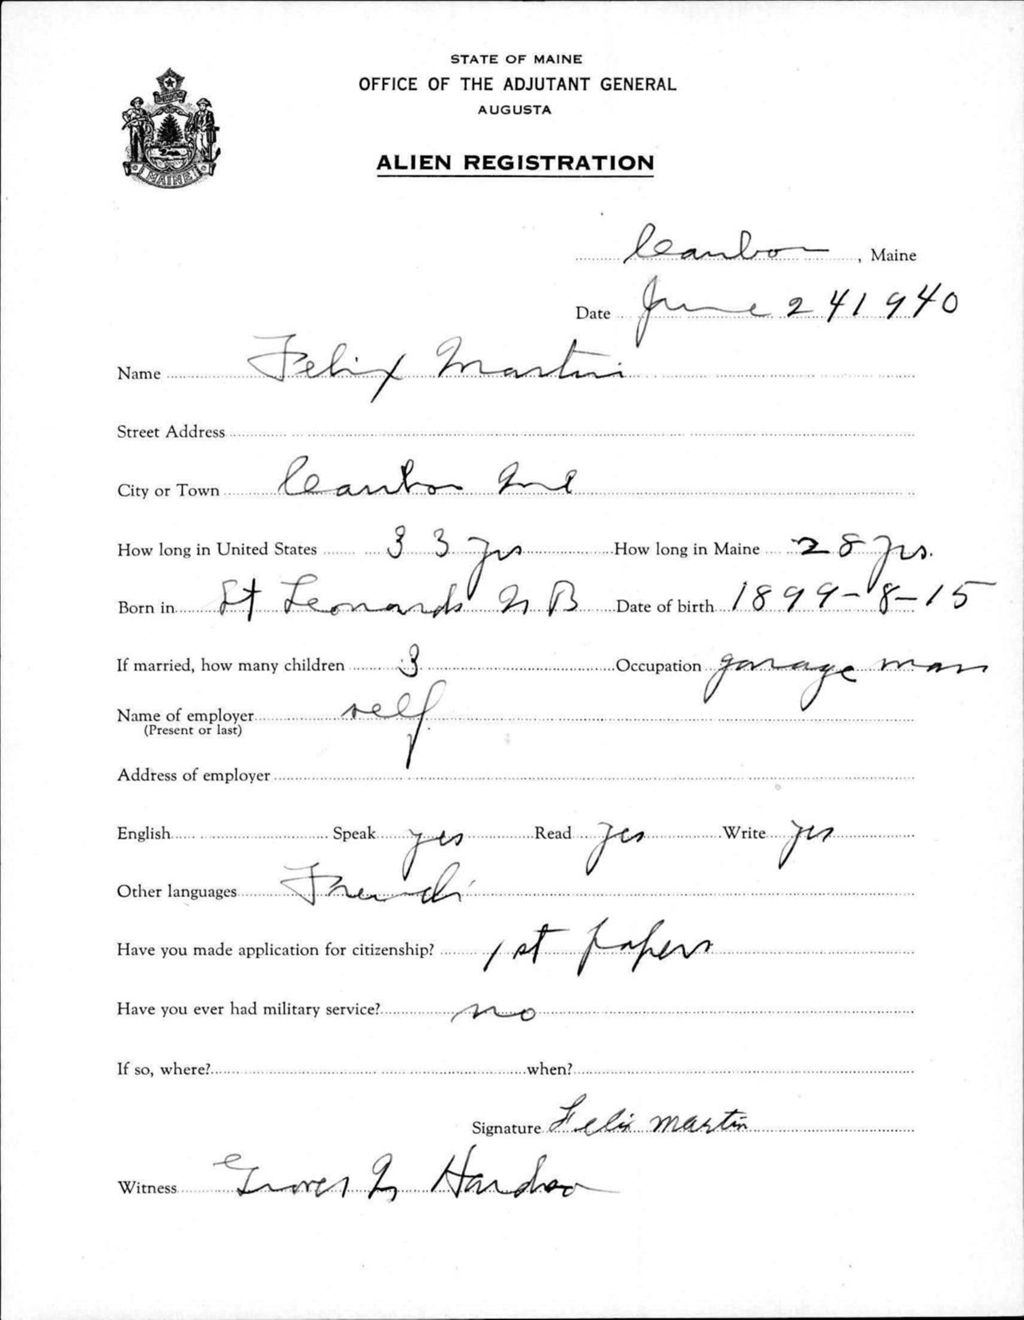 STATE OF MAINE
OFFICE OF THE ADJUTANT GENERAL
AUGUSTA
ALIEN REGISTRATION
Caribou, Maine
Date June 24 1940
Name Felix Martin
Street Address
City or Town Caribou Me
How long in United States 33 yrs How long in Maine 28 yrs.
Born in St Leonards N B Date of birth 1899-8-15
If married, how many children 3 Occupation garage man
Name of employer self
(Present or last)
Address of employer
English Speak yes Read yes Write yes
Other languages French
Have you made application for citizenship? 1st papers
Have you ever had military service? no
If so, where? when?
Signature Felix Martin
Witness Grover M Hardison
MAINE